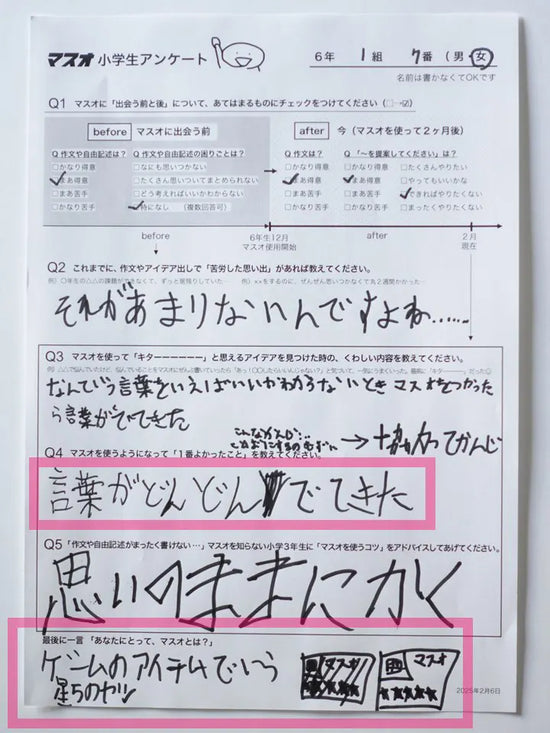 マスオ 小学生アンケート
6年 1組 7番 (男 女)
名前は書かなくてOKです
Q1 マスオに「出会う前と後」について、あてはまるものにチェックをつけてください(□→☑)
before マスオに出会う前
after 今(マスオを使って2ヶ月後)
Q 作文や自由記述は? Q 作文や自由記述の困りごとは? Q 作文は? Q 「〜を提案してください」は?
□かなり得意 □なにも思いつかない □かなり得意 □かなり得意 □たくさんやりたい
□まあ得意 □たくさん思いついてまとめられない □まあ得意 □まあ得意 □やってもいいかな
□まあ苦手 □どう考えればいいかわからない □まあ苦手 □まあ苦手 □できればやりたくない
□かなり苦手 □特になし (複数回答可) □かなり苦手 □かなり苦手 □まったくやりたくない
before 6年生12月 after 2月
マスオ使用開始 現在
Q2 これまでに、作文やアイデア出しで「苦労した思い出」があれば教えてください。
それがあまりないんですよね......
Q3 マスオを使って「キターーーーーー」と思えるアイデアを見つけた時の、くわしい内容を教えてください。
なんていう言葉をいえばいいかわからないとき マスオをつかった
ら言葉がでてきた
こんなかんじ…
Q4 マスオを使うようになって「1番よかったこと」を教えてください。
言葉がどんどんでてきた
Q5 「作文や自由記述がまったく書けない…」マスオを知らない小学3年生に「マスオを使うコツ」をアドバイスしてあげてください。
思いのままにかく
最後に一言 「あなたにとって、マスオとは?」
ゲームのアイテムでいう
星5のヤツ
マスオ
マスオ
2025年2月6日